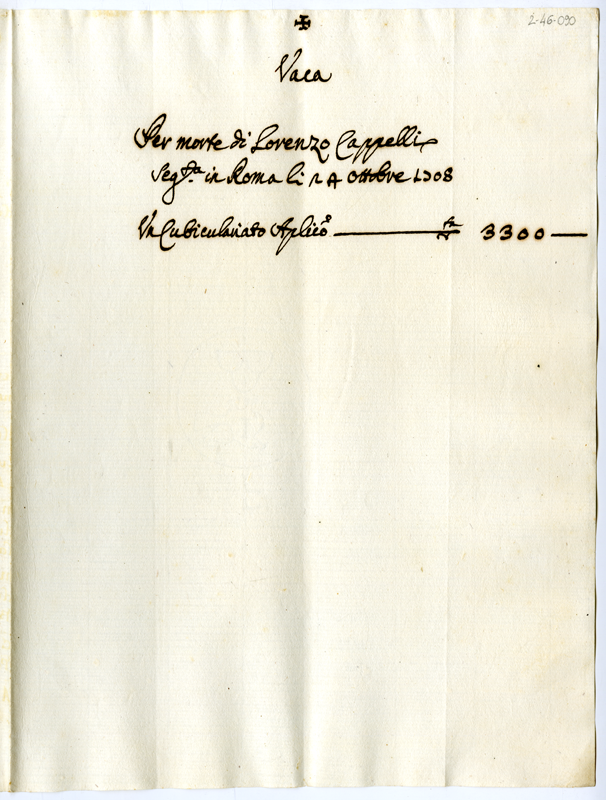 2-46-090
✠
Vaca
Per morte di Lorenzo Cappelli
Seg.ta in Roma li 14 Ottobre 1708
Un Cubiculariato Aplico 3300